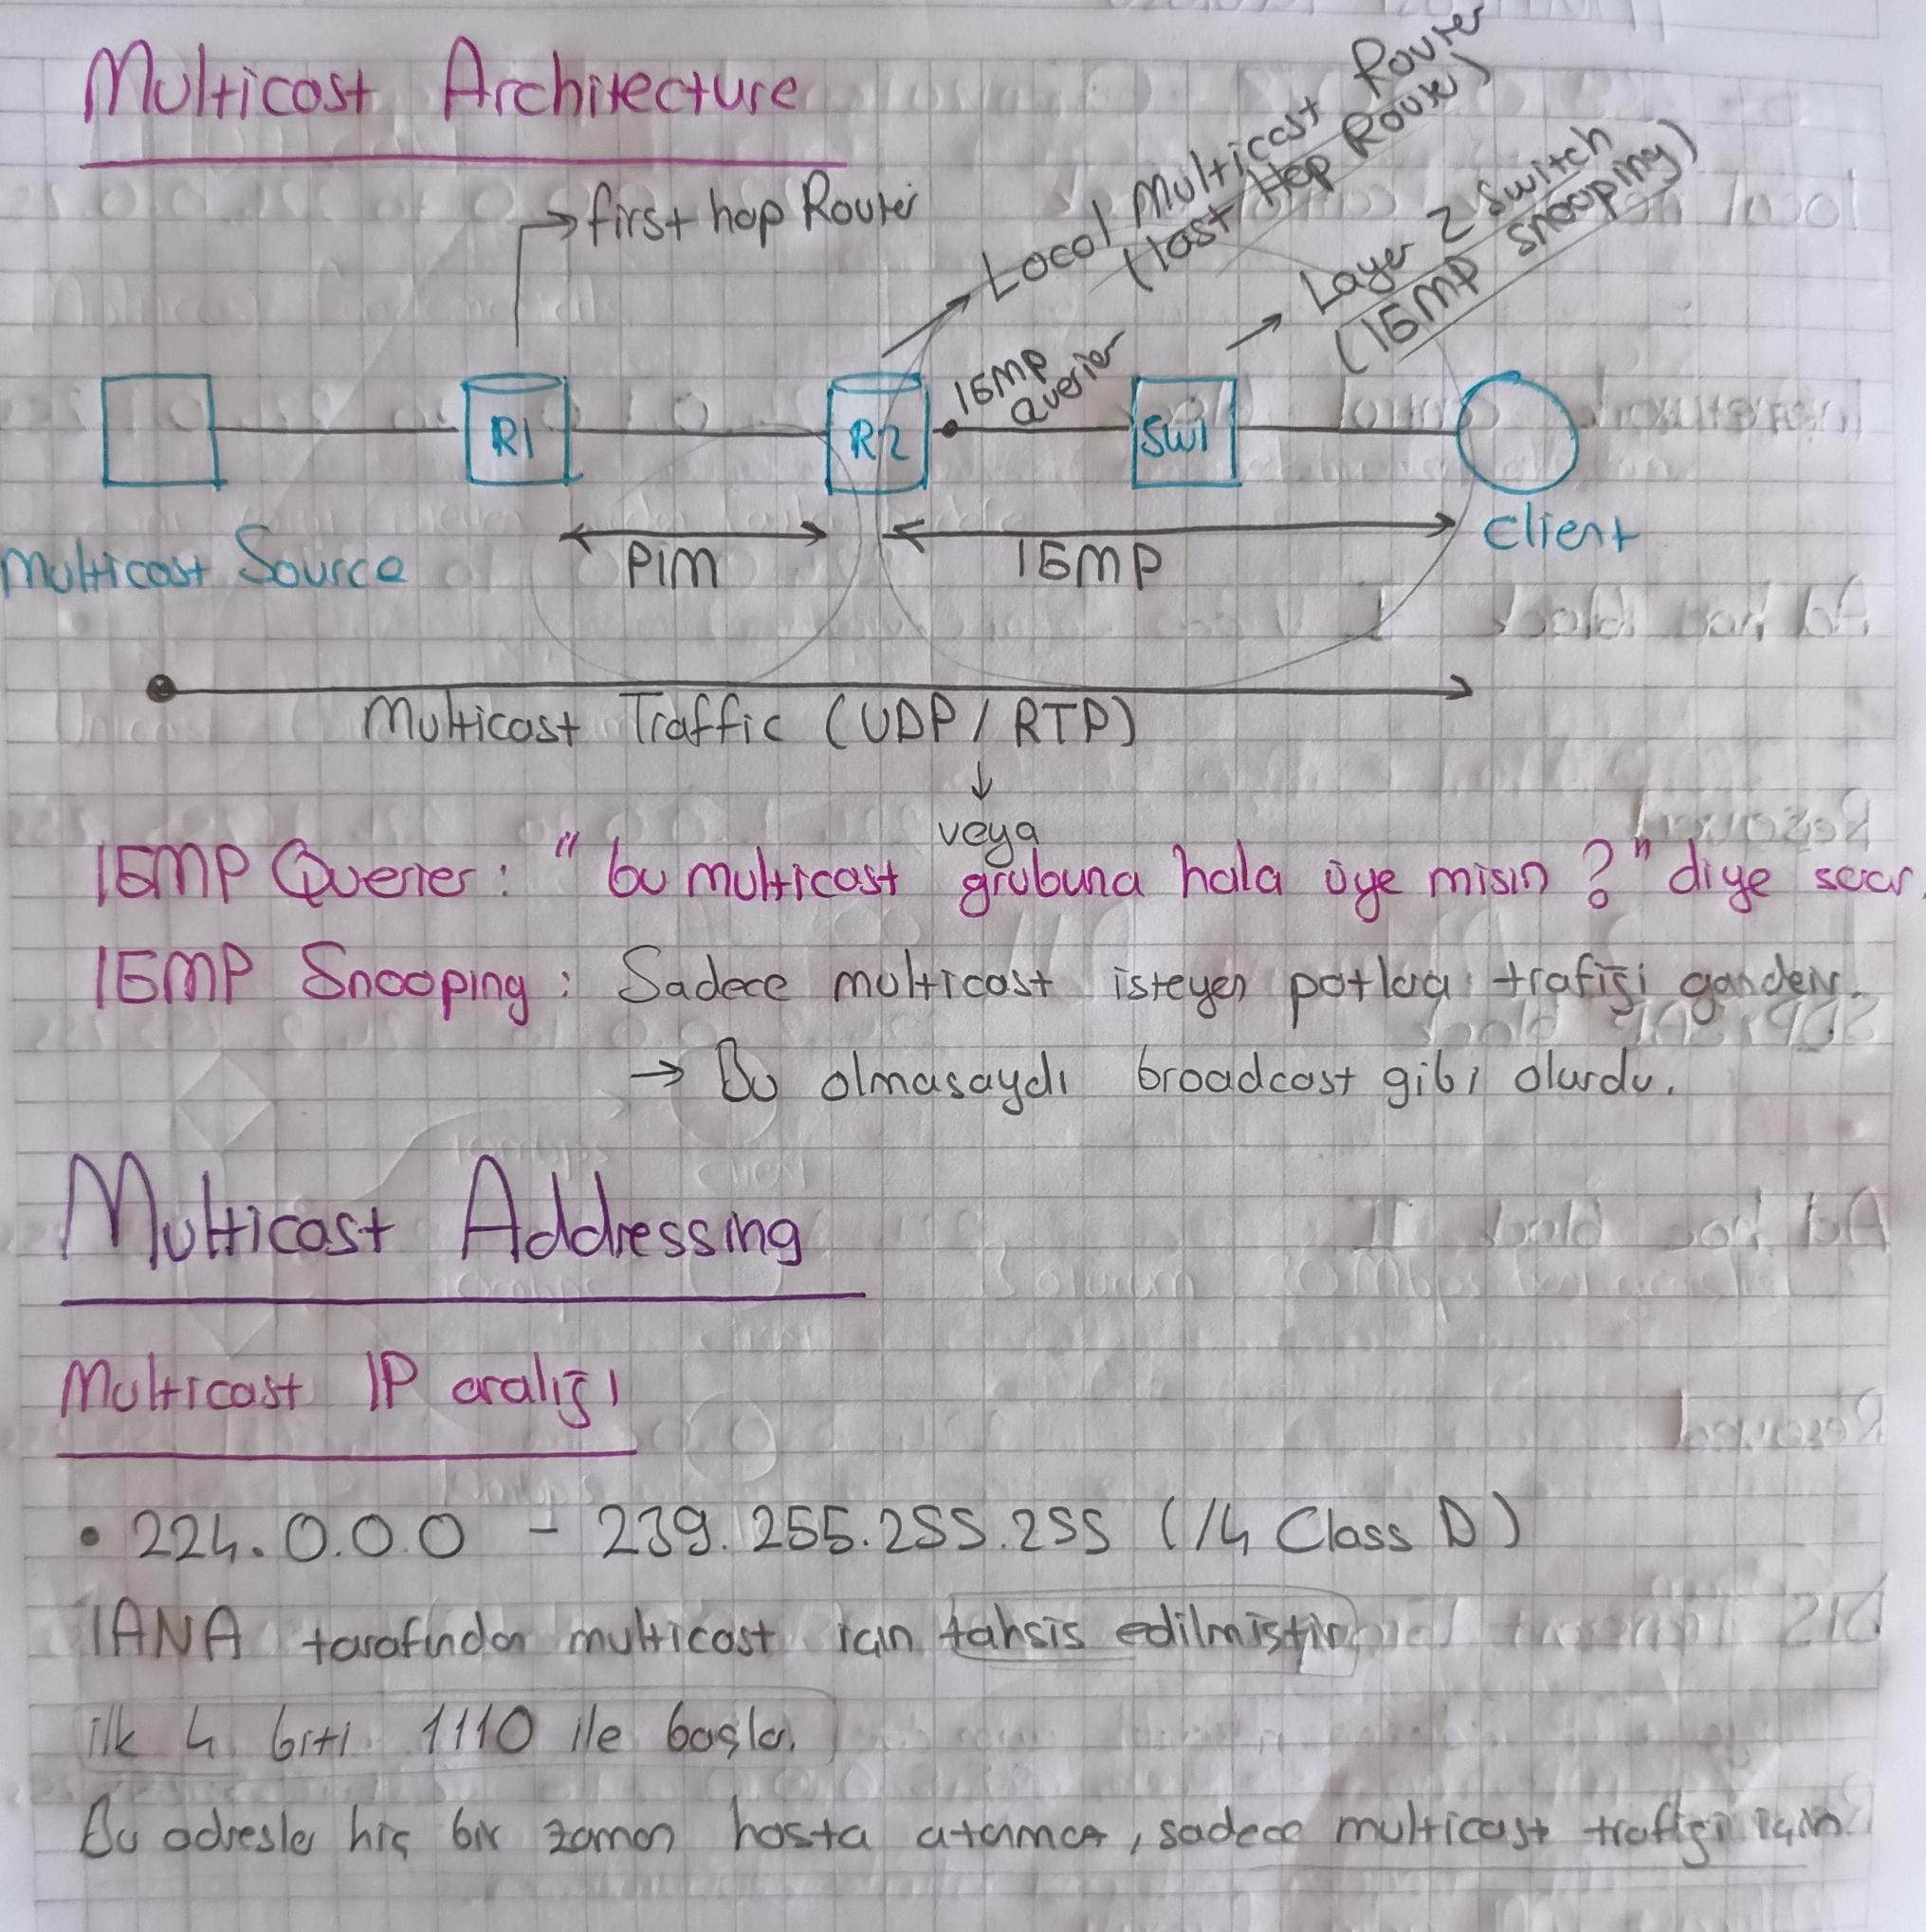 Multicast Architecture
first hop Router
Local Multicast Router
(last Hop Router)
Layer 2 Switch
(IGMP snooping)
IGMP
Querier
R1
R2
SW1
Multicast Source
PIM
IGMP
Client
Multicast Traffic (UDP / RTP)
↓
veya
IGMP Querier : " bu multicast grubuna hala üye misin ?" diye sorar.
IGMP Snooping : Sadece multicast isteyen potlara trafiği gönderir.
→ Bu olmasaydı broadcast gibi olurdu.
Multicast Addressing
Multicast IP aralığı
• 224.0.0.0 - 239.255.255.255 (/4 Class D)
IANA tarafından multicast için tahsis edilmiştir
ilk 4 biti 1110 ile başlar.
Bu adresler hiç bir zaman hosta atanmaz, sadece multicast trafiği için